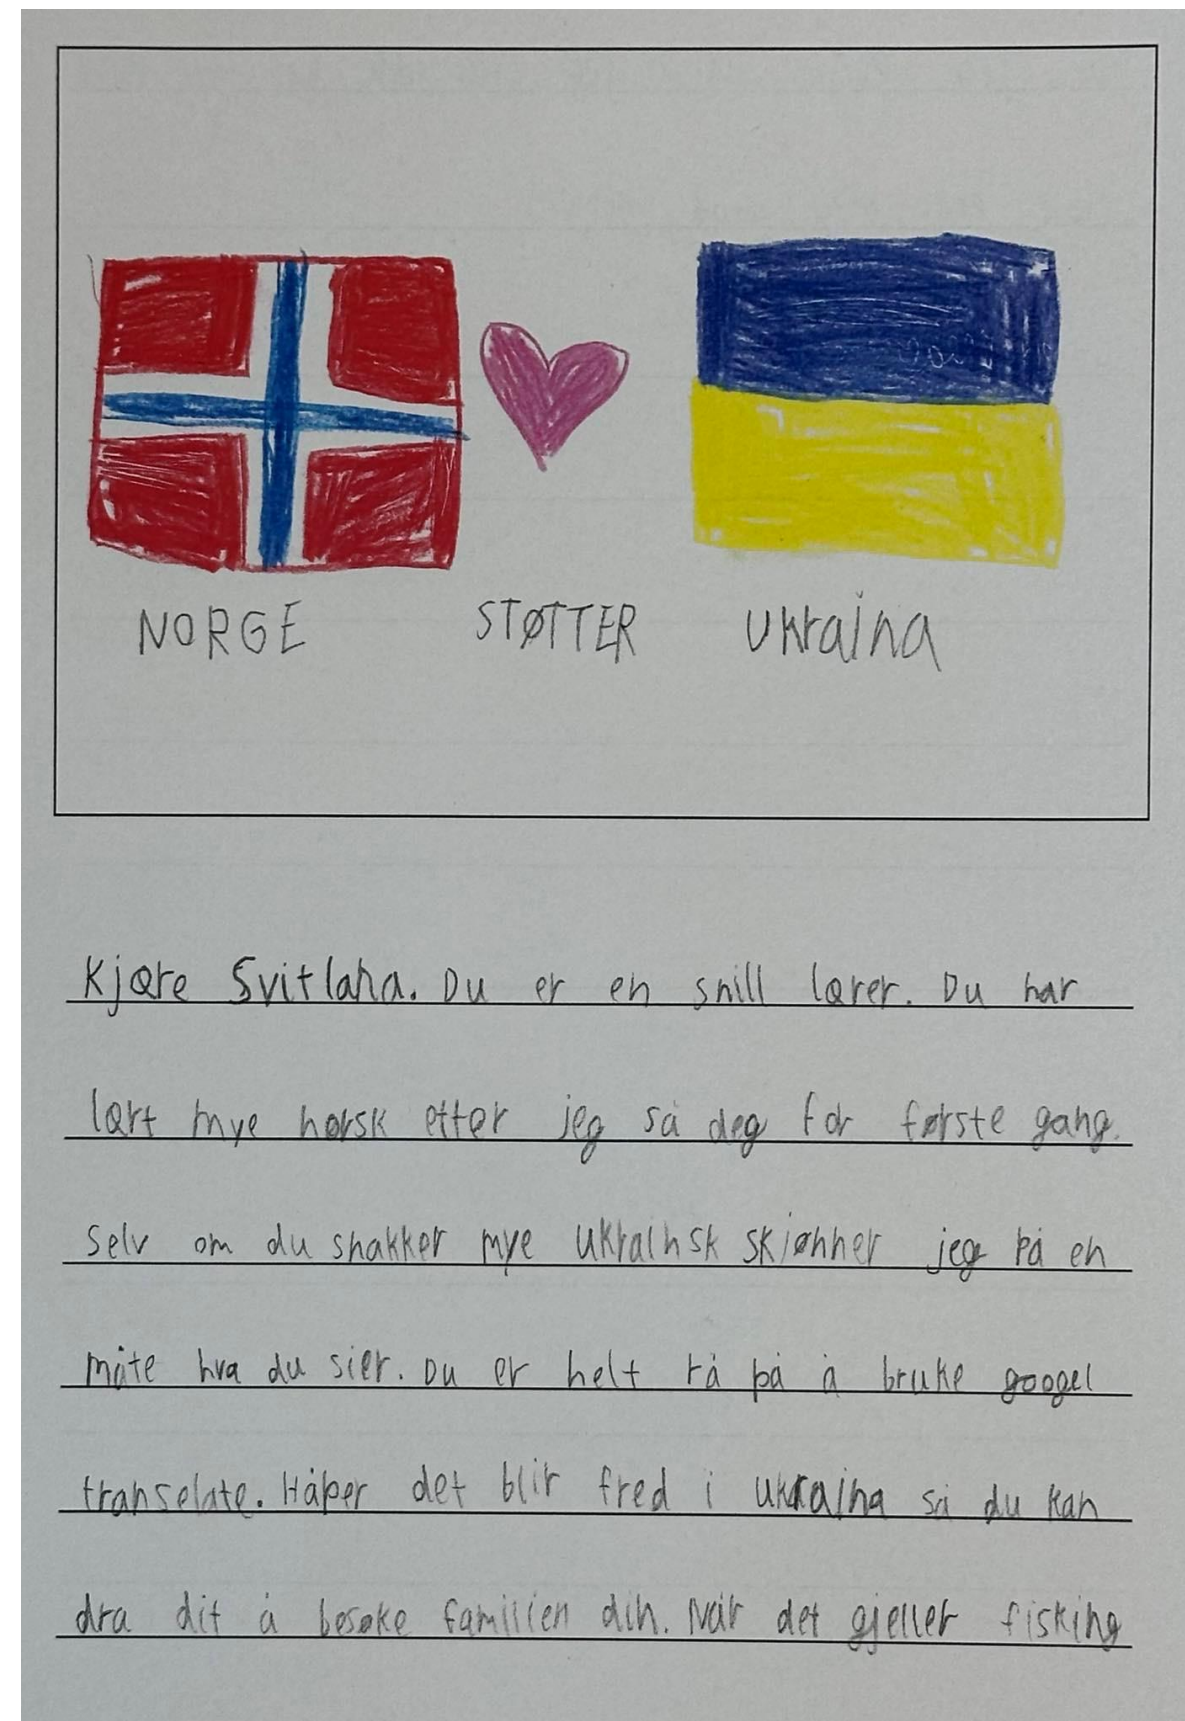 NORGE STØTTER Ukraina
Kjære Svitlana. Du er en snill lærer. Du har
lært mye norsk etter jeg så deg for første gang.
selv om du snakker mye ukrainsk skjønner jeg på en
måte hva du sier. Du er helt rå på å bruke googel
transelate. Håper det blir fred i ukraina så du kan
dra dit å besøke familien din. Når det gjeller fisking